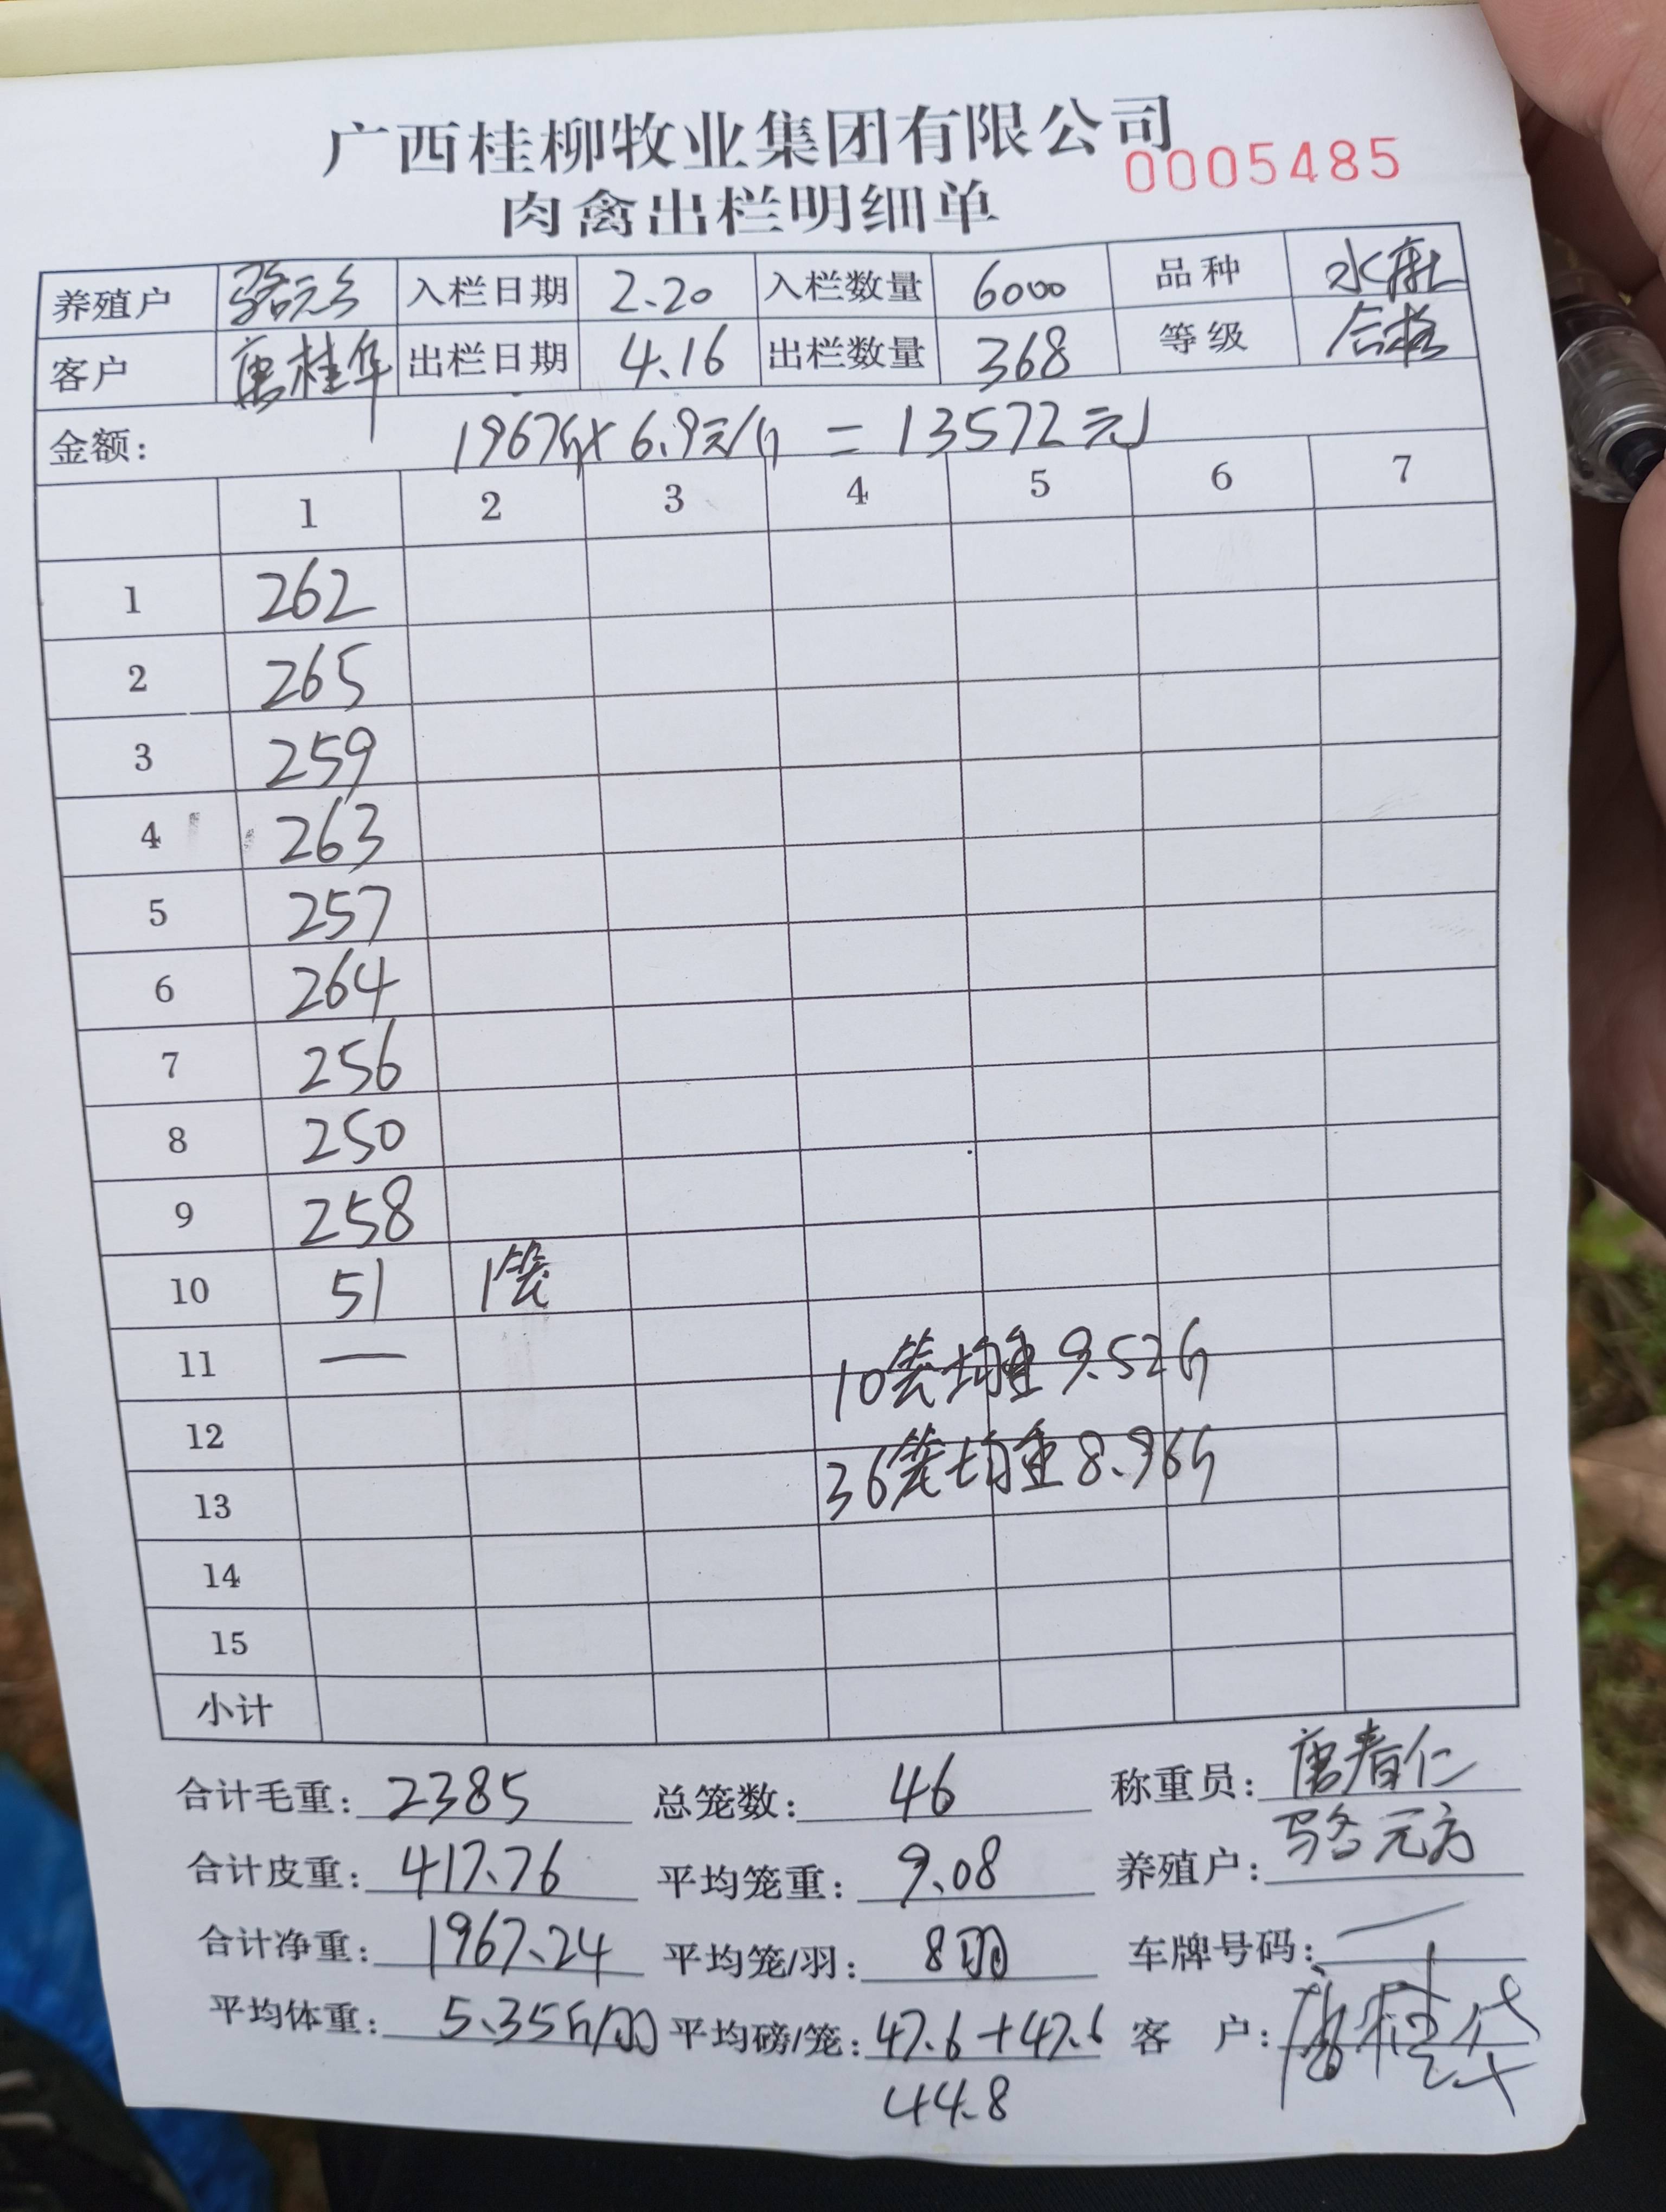 广西桂柳牧业集团有限公司
0005485
肉禽出栏明细单
养殖户 骆元方 入栏日期 2.20 入栏数量 6000 品种 水麻
客户 唐桂华 出栏日期 4.16 出栏数量 368 等级 合格
金额: 1967斤×6.9元/斤 = 13572元
1 2 3 4 5 6 7
1 262
2 265
3 259
4 263
5 257
6 264
7 256
8 250
9 258
10 51 1笼
11 — 10笼均重9.52斤
12
13 36笼均重8.96斤
14
15
小计
合计毛重: 2385 总笼数: 46 称重员: 唐春仁
合计皮重: 417.76 平均笼重: 9.08 养殖户: 骆元方
合计净重: 1967.24 平均笼/羽: 8羽 车牌号码: —
平均体重: 5.35斤/羽 平均磅/笼: 47.6+47.6 客 户: 唐桂华
44.8